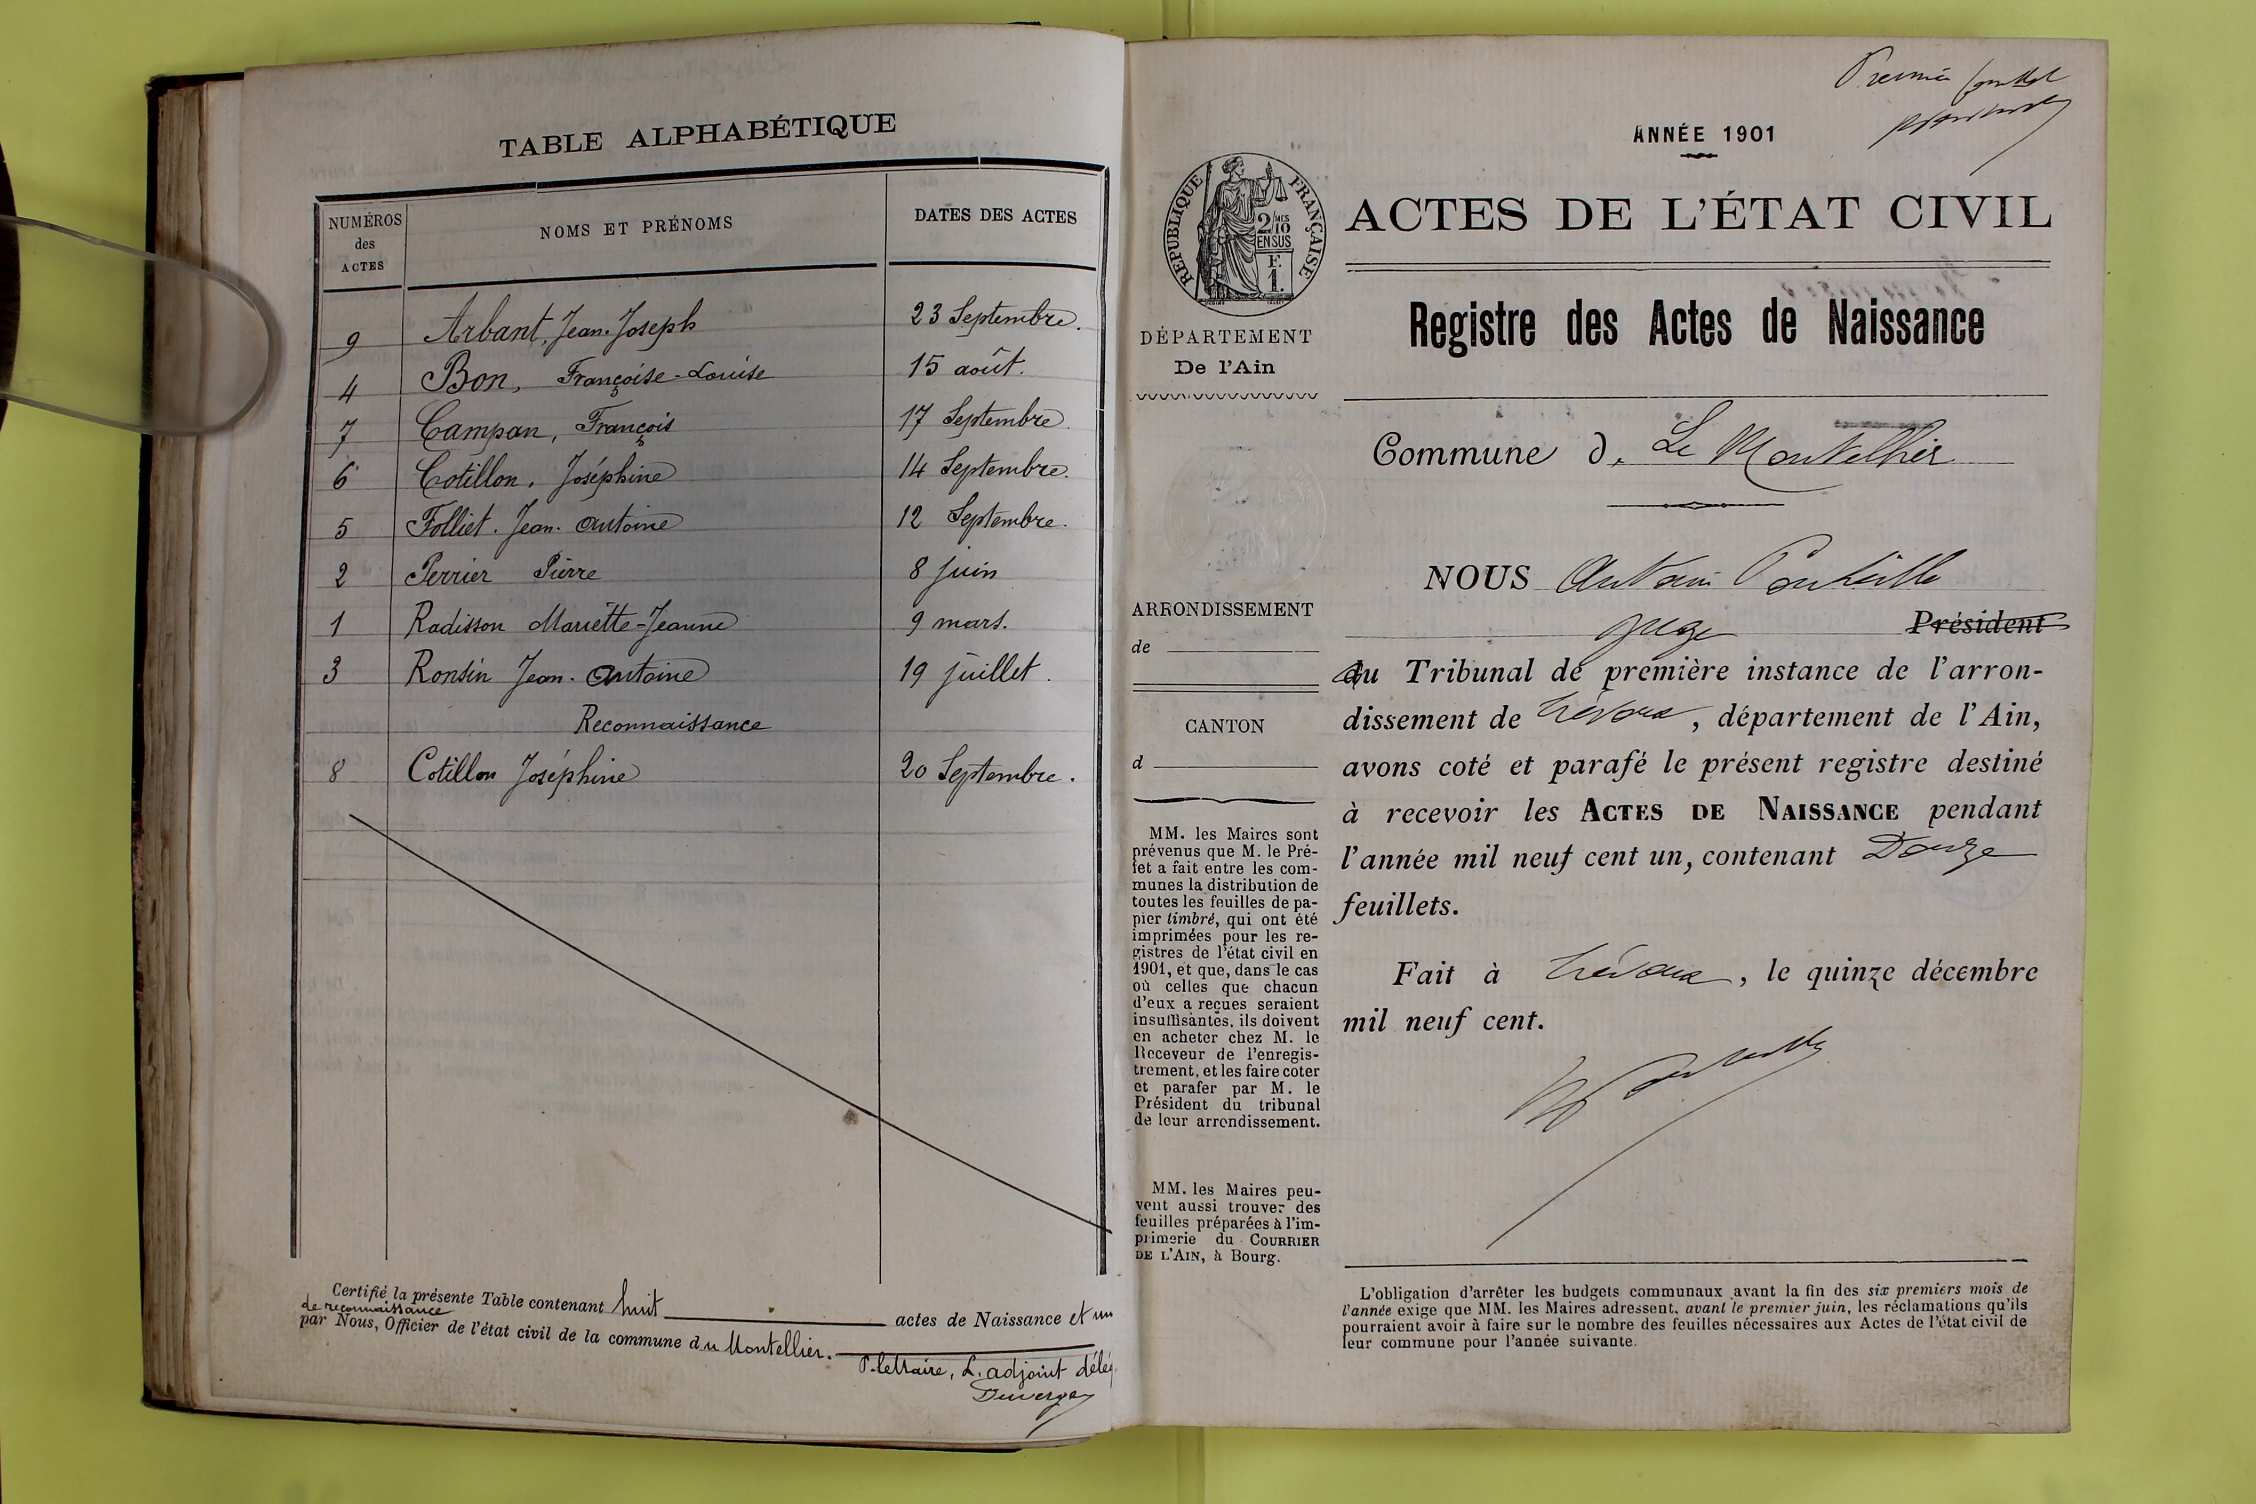 TABLE ALPHABÉTIQUE
NUMÉROS des ACTES
NOMS ET PRÉNOMS
DATES DES ACTES
9 Arbant, Jean-Joseph 23 Septembre.
4 Bon, Françoise-Louise 15 août.
7 Campan, François 17 Septembre.
6 Cotillon, Joséphine 14 Septembre.
5 Folliet. Jean-Antoine 12 Septembre.
2 Perrier Pierre 8 juin
1 Radisson Mariette-Jeanne 9 mars.
3 Ronsin Jean-Antoine 19 juillet.
Reconnaissance
8 Cotillon Joséphine 20 Septembre.
Certifié la présente Table contenant huit actes de Naissance et un
de reconnaissance
par Nous, Officier de l'état civil de la commune du Montellier.
P. le Maire, L. adjoint délég
ANNÉE 1901
ACTES DE L'ÉTAT CIVIL
Registre des Actes de Naissance
Commune d. Le Montellier
NOUS Antoine
juge Président
au Tribunal de première instance de l'arron-
dissement de Trévoux, département de l'Ain,
avons coté et parafé le présent registre destiné
à recevoir les ACTES DE NAISSANCE pendant
l'année mil neuf cent un, contenant Douze
feuillets.
Fait à Trévoux, le quinze décembre
mil neuf cent.
L'obligation d'arrêter les budgets communaux avant la fin des six premiers mois de
l'année exige que MM. les Maires adressent, avant le premier juin, les réclamations qu'ils
pourraient avoir à faire sur le nombre des feuilles nécessaires aux Actes de l'état civil de
leur commune pour l'année suivante.
RÉPUBLIQUE FRANÇAISE
2/MES
10
EN SUS
F.
1.
DÉPARTEMENT
De l'Ain
ARRONDISSEMENT
de
CANTON
d
MM. les Maires sont
prévenus que M. le Pré-
fet a fait entre les com-
munes la distribution de
toutes les feuilles de pa-
pier timbré, qui ont été
imprimées pour les re-
gistres de l'état civil en
1901, et que, dans le cas
où celles que chacun
d'eux a reçues seraient
insuffisantes, ils doivent
en acheter chez M. le
Receveur de l'enregis-
trement, et les faire coter
et parafer par M. le
Président du tribunal
de leur arrondissement.
MM. les Maires peu-
vent aussi trouver des
feuilles préparées à l'im-
primerie du COURRIER
DE L'AIN, à Bourg.